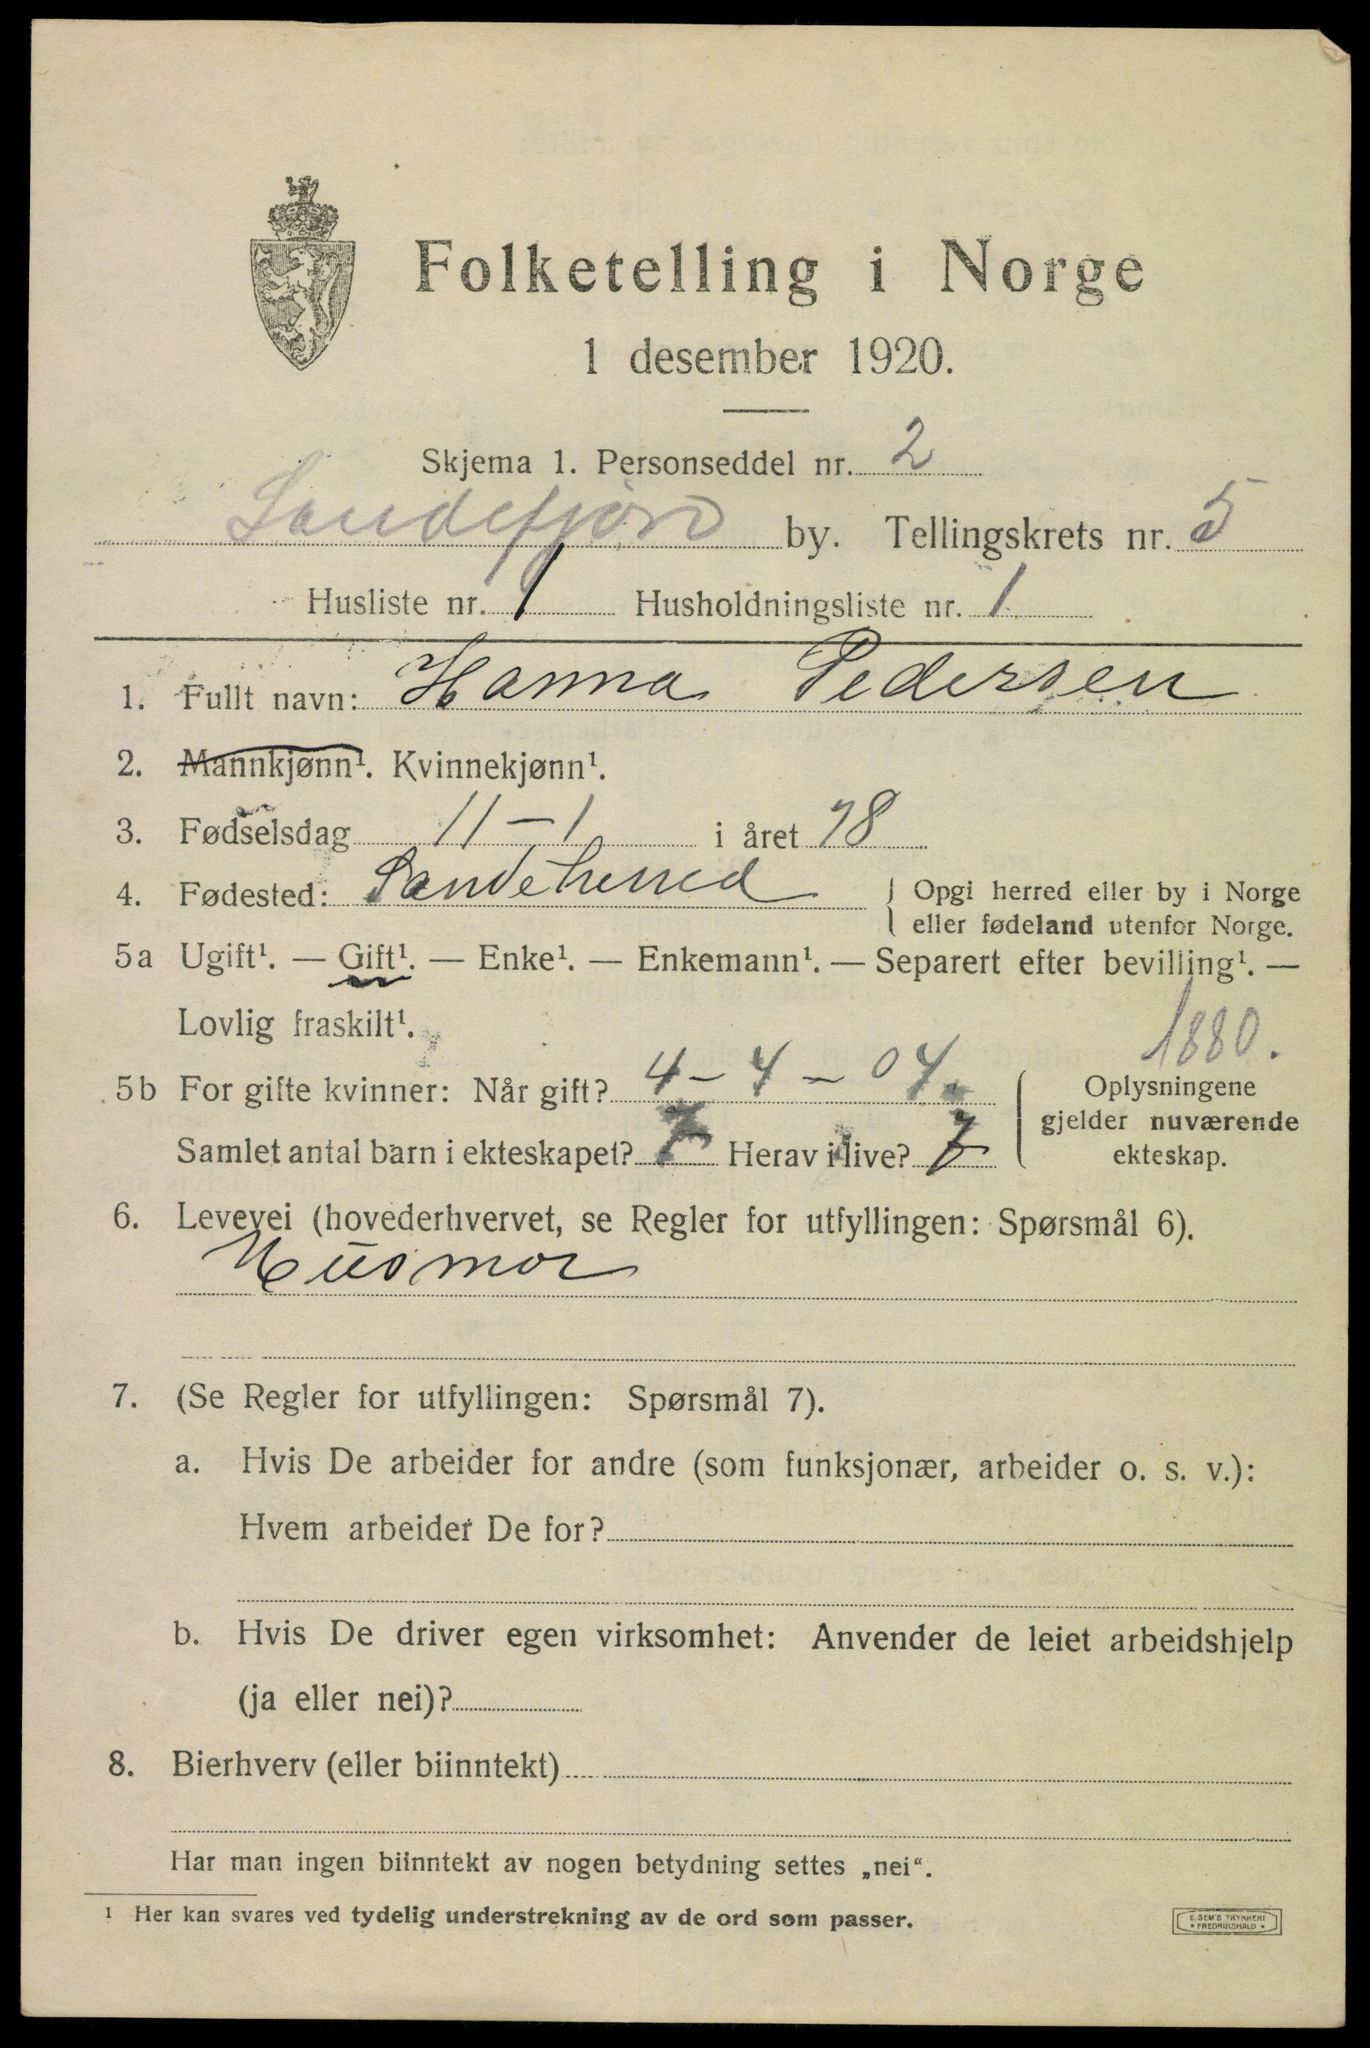 Folketelling i Norge
1 desember 1920.
Skjema 1. Personseddel nr. 2
Sandefjord by. Tellingskrets nr. 5
Husliste nr. 1 Husholdningsliste nr. 1
1. Fullt navn: Hanna Pedersen
2. Mannkjønn¹. Kvinnekjønn¹.
3. Fødselsdag 11-1 i året 78
4. Fødested: Sandeherred { Opgi herred eller by i Norge
eller fødeland utenfor Norge.
5a Ugift¹. — Gift¹. — Enke¹. — Enkemann¹. — Separert efter bevilling¹. —
Lovlig fraskilt¹.
1880.
5b For gifte kvinner: Når gift? 4-4-04. Oplysningene
gjelder nuværende
Samlet antal barn i ekteskapet? 7 Herav i live? 7 ekteskap.
6. Levevei (hovederhvervet, se Regler for utfyllingen: Spørsmål 6).
Husmor
7. (Se Regler for utfyllingen: Spørsmål 7).
a. Hvis De arbeider for andre (som funksjonær, arbeider o. s. v.):
Hvem arbeider De for?
b. Hvis De driver egen virksomhet: Anvender de leiet arbeidshjelp
(ja eller nei)?
8. Bierhverv (eller biinntekt)
Har man ingen biinntekt av nogen betydning settes „nei“.
¹ Her kan svares ved tydelig understrekning av de ord som passer.
E. SEM'S TRYKKERI
* FREDRIKSHALD *